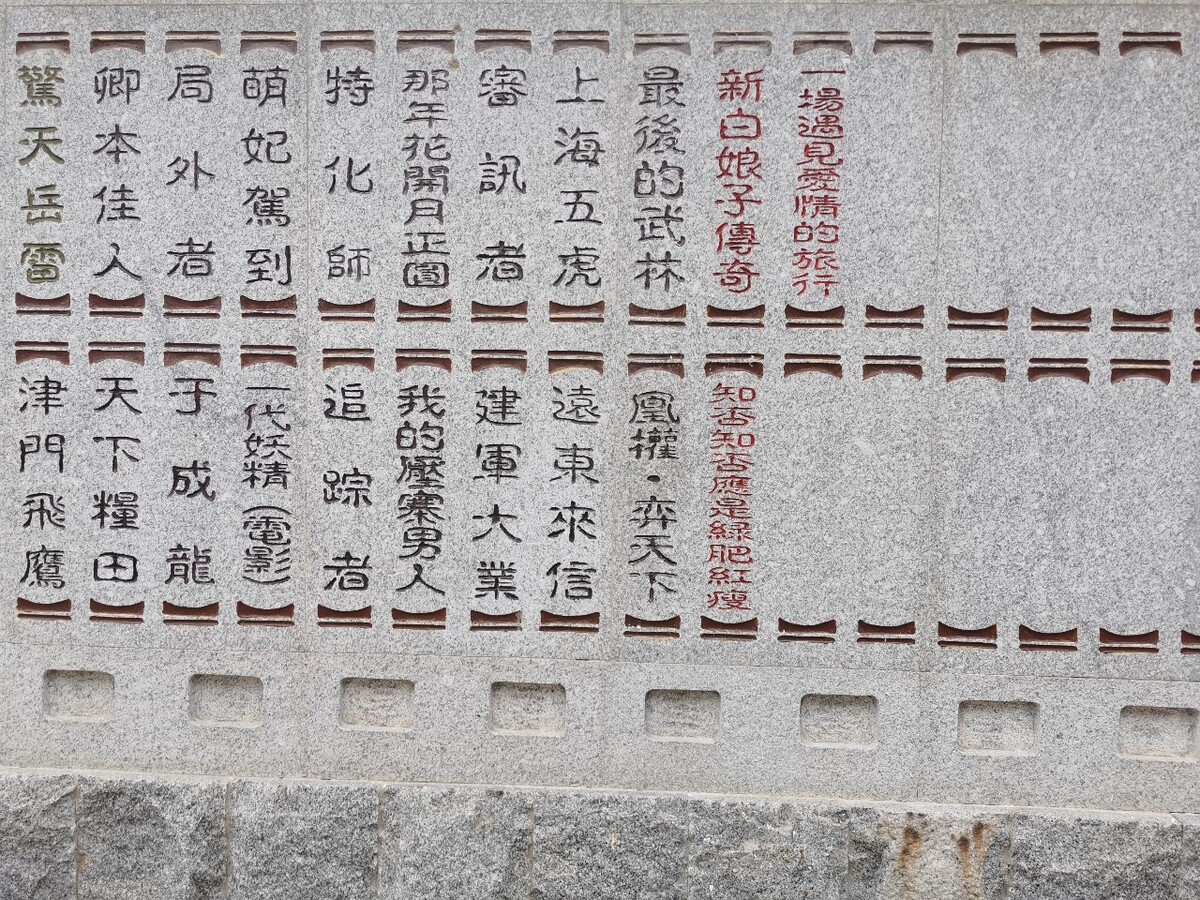 驚天岳雷
卿本佳人
局外者
萌妃駕到
特化師
那年花開月正圓
審訊者
上海五虎
最後的武林
新白娘子傳奇
一場遇見愛情的旅行
津門飛鷹
天下糧田
于成龍
一代妖精（電影）
追踪者
我的壓寨男人
建軍大業
遠東來信
凰權·弈天下
知否知否應是綠肥紅瘦